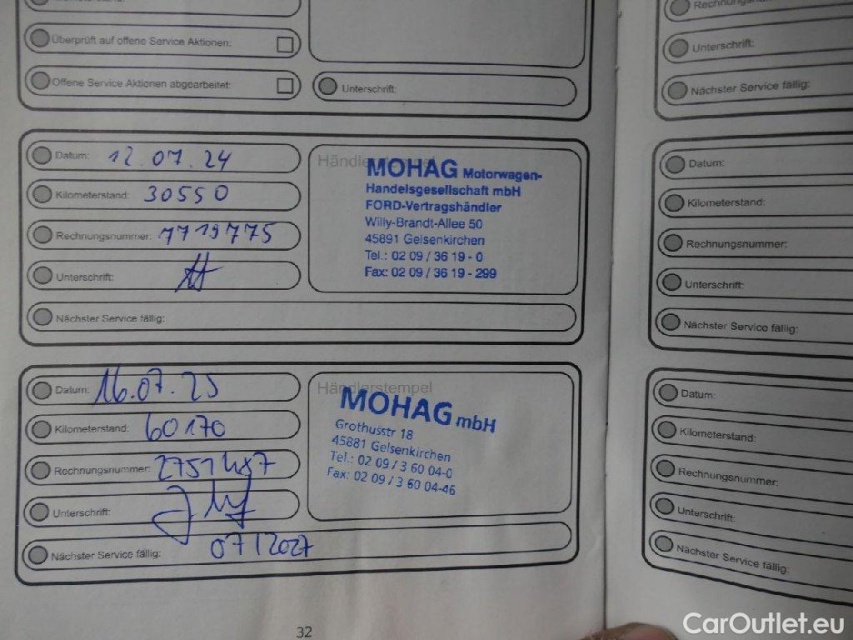 Überprüft auf offene Service Aktionen:
Offene Service Aktionen abgearbeitet:
Unterschrift:
Datum: 12.07.24
Kilometerstand: 30550
Rechnungsnummer: 7719775
Unterschrift:
Nächster Service fällig:
MOHAG Motorwagen-
Handelsgesellschaft mbH
FORD-Vertragshändler
Willy-Brandt-Allee 50
45891 Gelsenkirchen
Tel.: 02 09 / 36 19 - 0
Fax: 02 09 / 36 19 - 299
Datum: 16.07.25
Kilometerstand: 60170
Rechnungsnummer:
Unterschrift:
Nächster Service fällig: 07/2027
Händlerstempel
MOHAG mbH
Grothusstr 18
45881 Gelsenkirchen
Tel.: 02 09 / 3 60 04-0
Fax: 02 09 / 3 60 04-46
32
Unterschrift:
Nächster Service fällig:
Datum:
Kilometerstand:
Rechnungsnummer:
Unterschrift:
Nächster Service fällig:
Datum:
Kilometerstand:
Rechnungsnummer:
Unterschrift:
Nächster Service fällig:
CarOutlet.eu